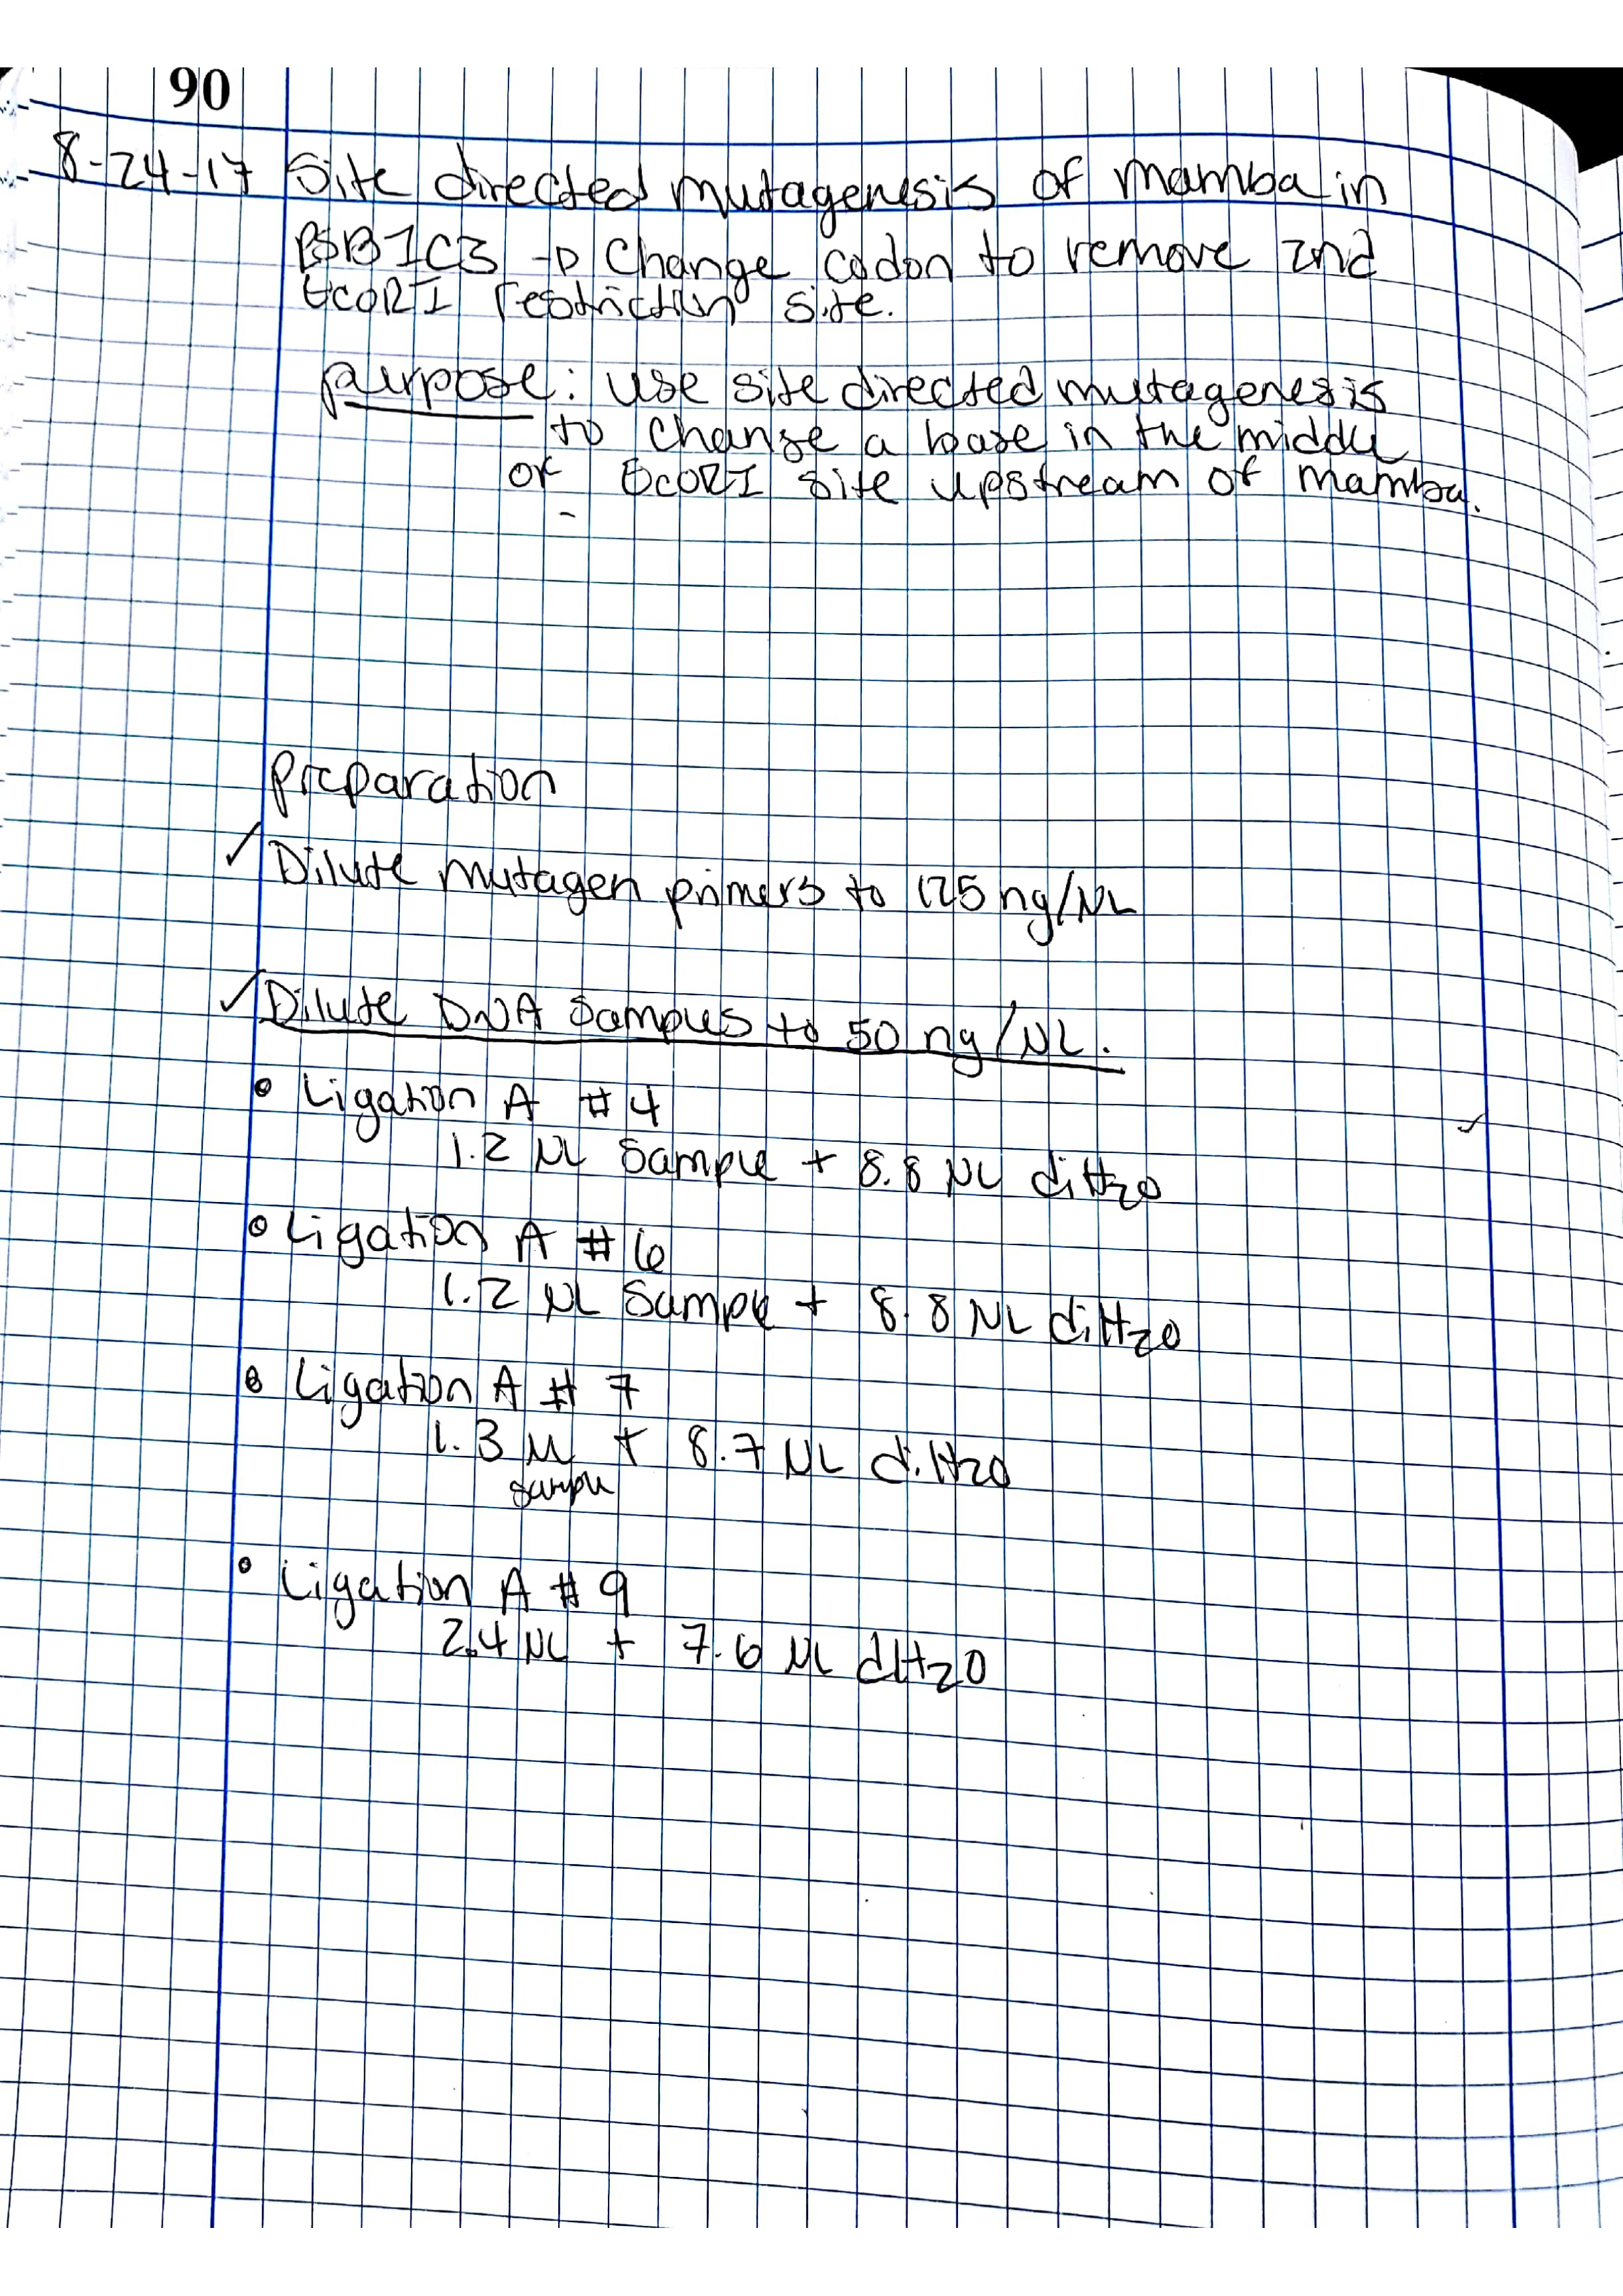 90
8-24-17 Site directed mutagenesis of mamba in
PSB1C3 → Change codon to remove 2nd
EcoRI restriction site.
purpose: use site directed mutagenesis
to change a base in the middle
of EcoRI site upstream of mamba.
preparation
✓ Dilute mutagen primers to 125 ng/µL
✓ Dilute DNA samples to 50 ng/µL.
• Ligation A #4
1.2 µL Sample + 8.8 µL diH2O
• Ligation A #6
1.2 µL Sample + 8.8 µL diH2O
• Ligation A #7
1.3 µL + 8.7 µL diH2O
sample
• Ligation A #9
2.4 µL + 7.6 µL dH2O